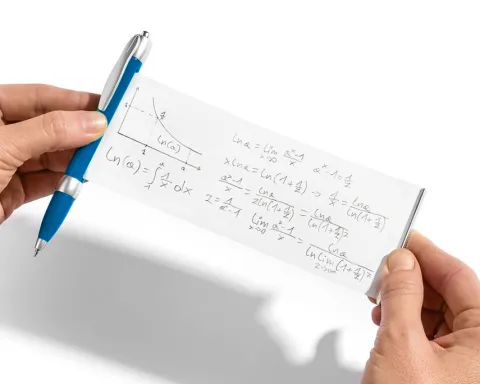 1/x
ln(a)
1 a
ln(a) = ∫₁ᵃ 1/x dx
ln a = lim x→0 (aˣ-1)/x aˣ-1 = 1/z
x ln a = ln(1+1/z) → 1/x = ln a / ln(1+1/z)
(aˣ-1)/x = ln a / (z ln(1+1/z)) = ln a / ln(1+1/z)ᶻ
z = 1/(aˣ-1)
lim x→0 (aˣ-1)/x = ln a / ln lim z→∞ (1+1/z)ᶻ